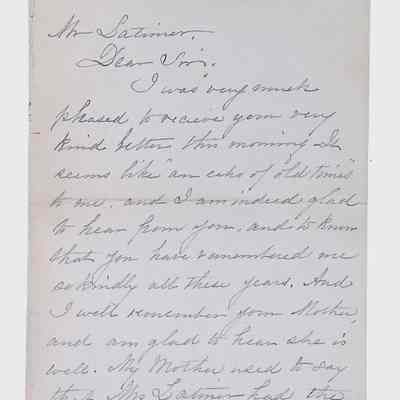 Mr Latimer.
Dear Sir.
I was very much
pleased to receive your very
kind letter this morning. It
seems like "an echo of old times"
to me. and I am indeed glad
to hear from you. and to know
that you have remembered me
so kindly all these years. And
I well remember your Mother,
and am glad to hear she is
well. My Mother used to say
that Mrs Latimer had the